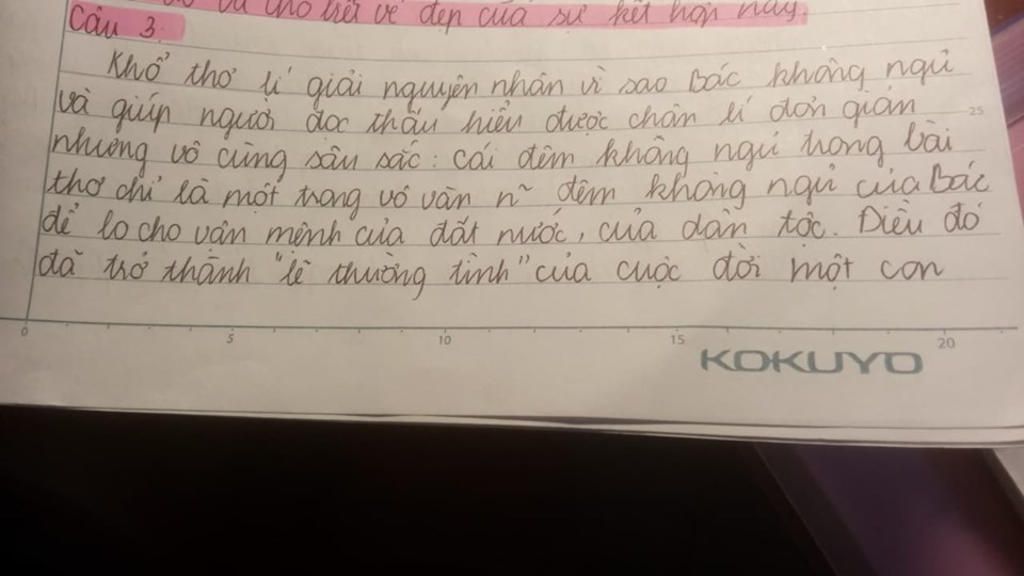 và cho biết vẻ đẹp của sự kết hợp này.
Câu 3.
Khổ thơ lí giải nguyên nhân vì sao Bác không ngủ
và giúp người đọc thấu hiểu được chân lí đơn giản
nhưng vô cùng sâu sắc: cái đêm không ngủ trong bài
thơ chỉ là một trong vô vàn n~ đêm không ngủ của Bác
để lo cho vận mệnh của đất nước, của dân tộc. Điều đó
đã trở thành "lẽ thường tình" của cuộc đời một con
0 5 10 15 20
25
KOKUYO